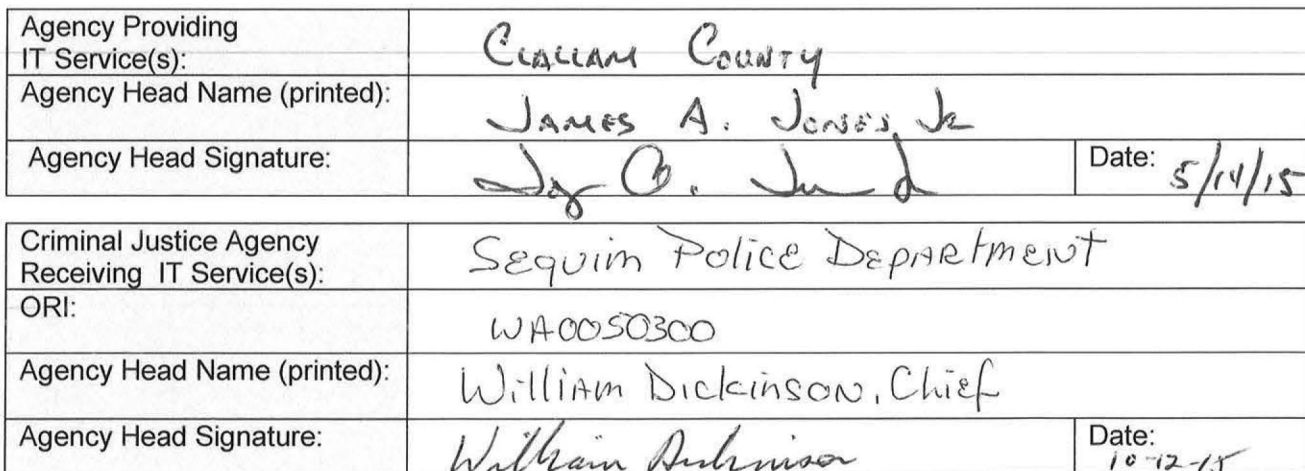 Agency Providing
IT Service(s):
Clallam County
Agency Head Name (printed):
James A. Jones, Jr
Agency Head Signature:
Date: 5/14/15
Criminal Justice Agency
Receiving IT Service(s):
Sequim Police Department
ORI:
WA0050300
Agency Head Name (printed):
William Dickinson, Chief
Agency Head Signature:
William Dickinson
Date:
10-12-15